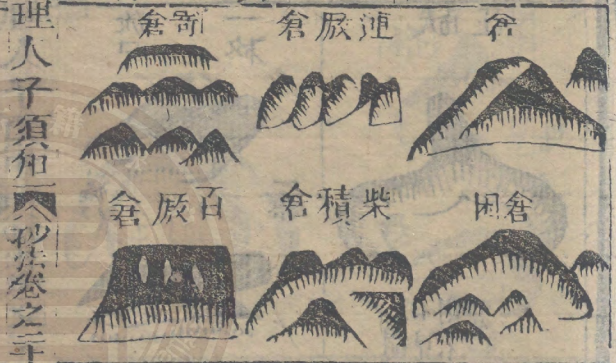 倉
連厫倉
倉
倉囷
柴積倉
百厫倉
理人子須知 砂法卷之二十